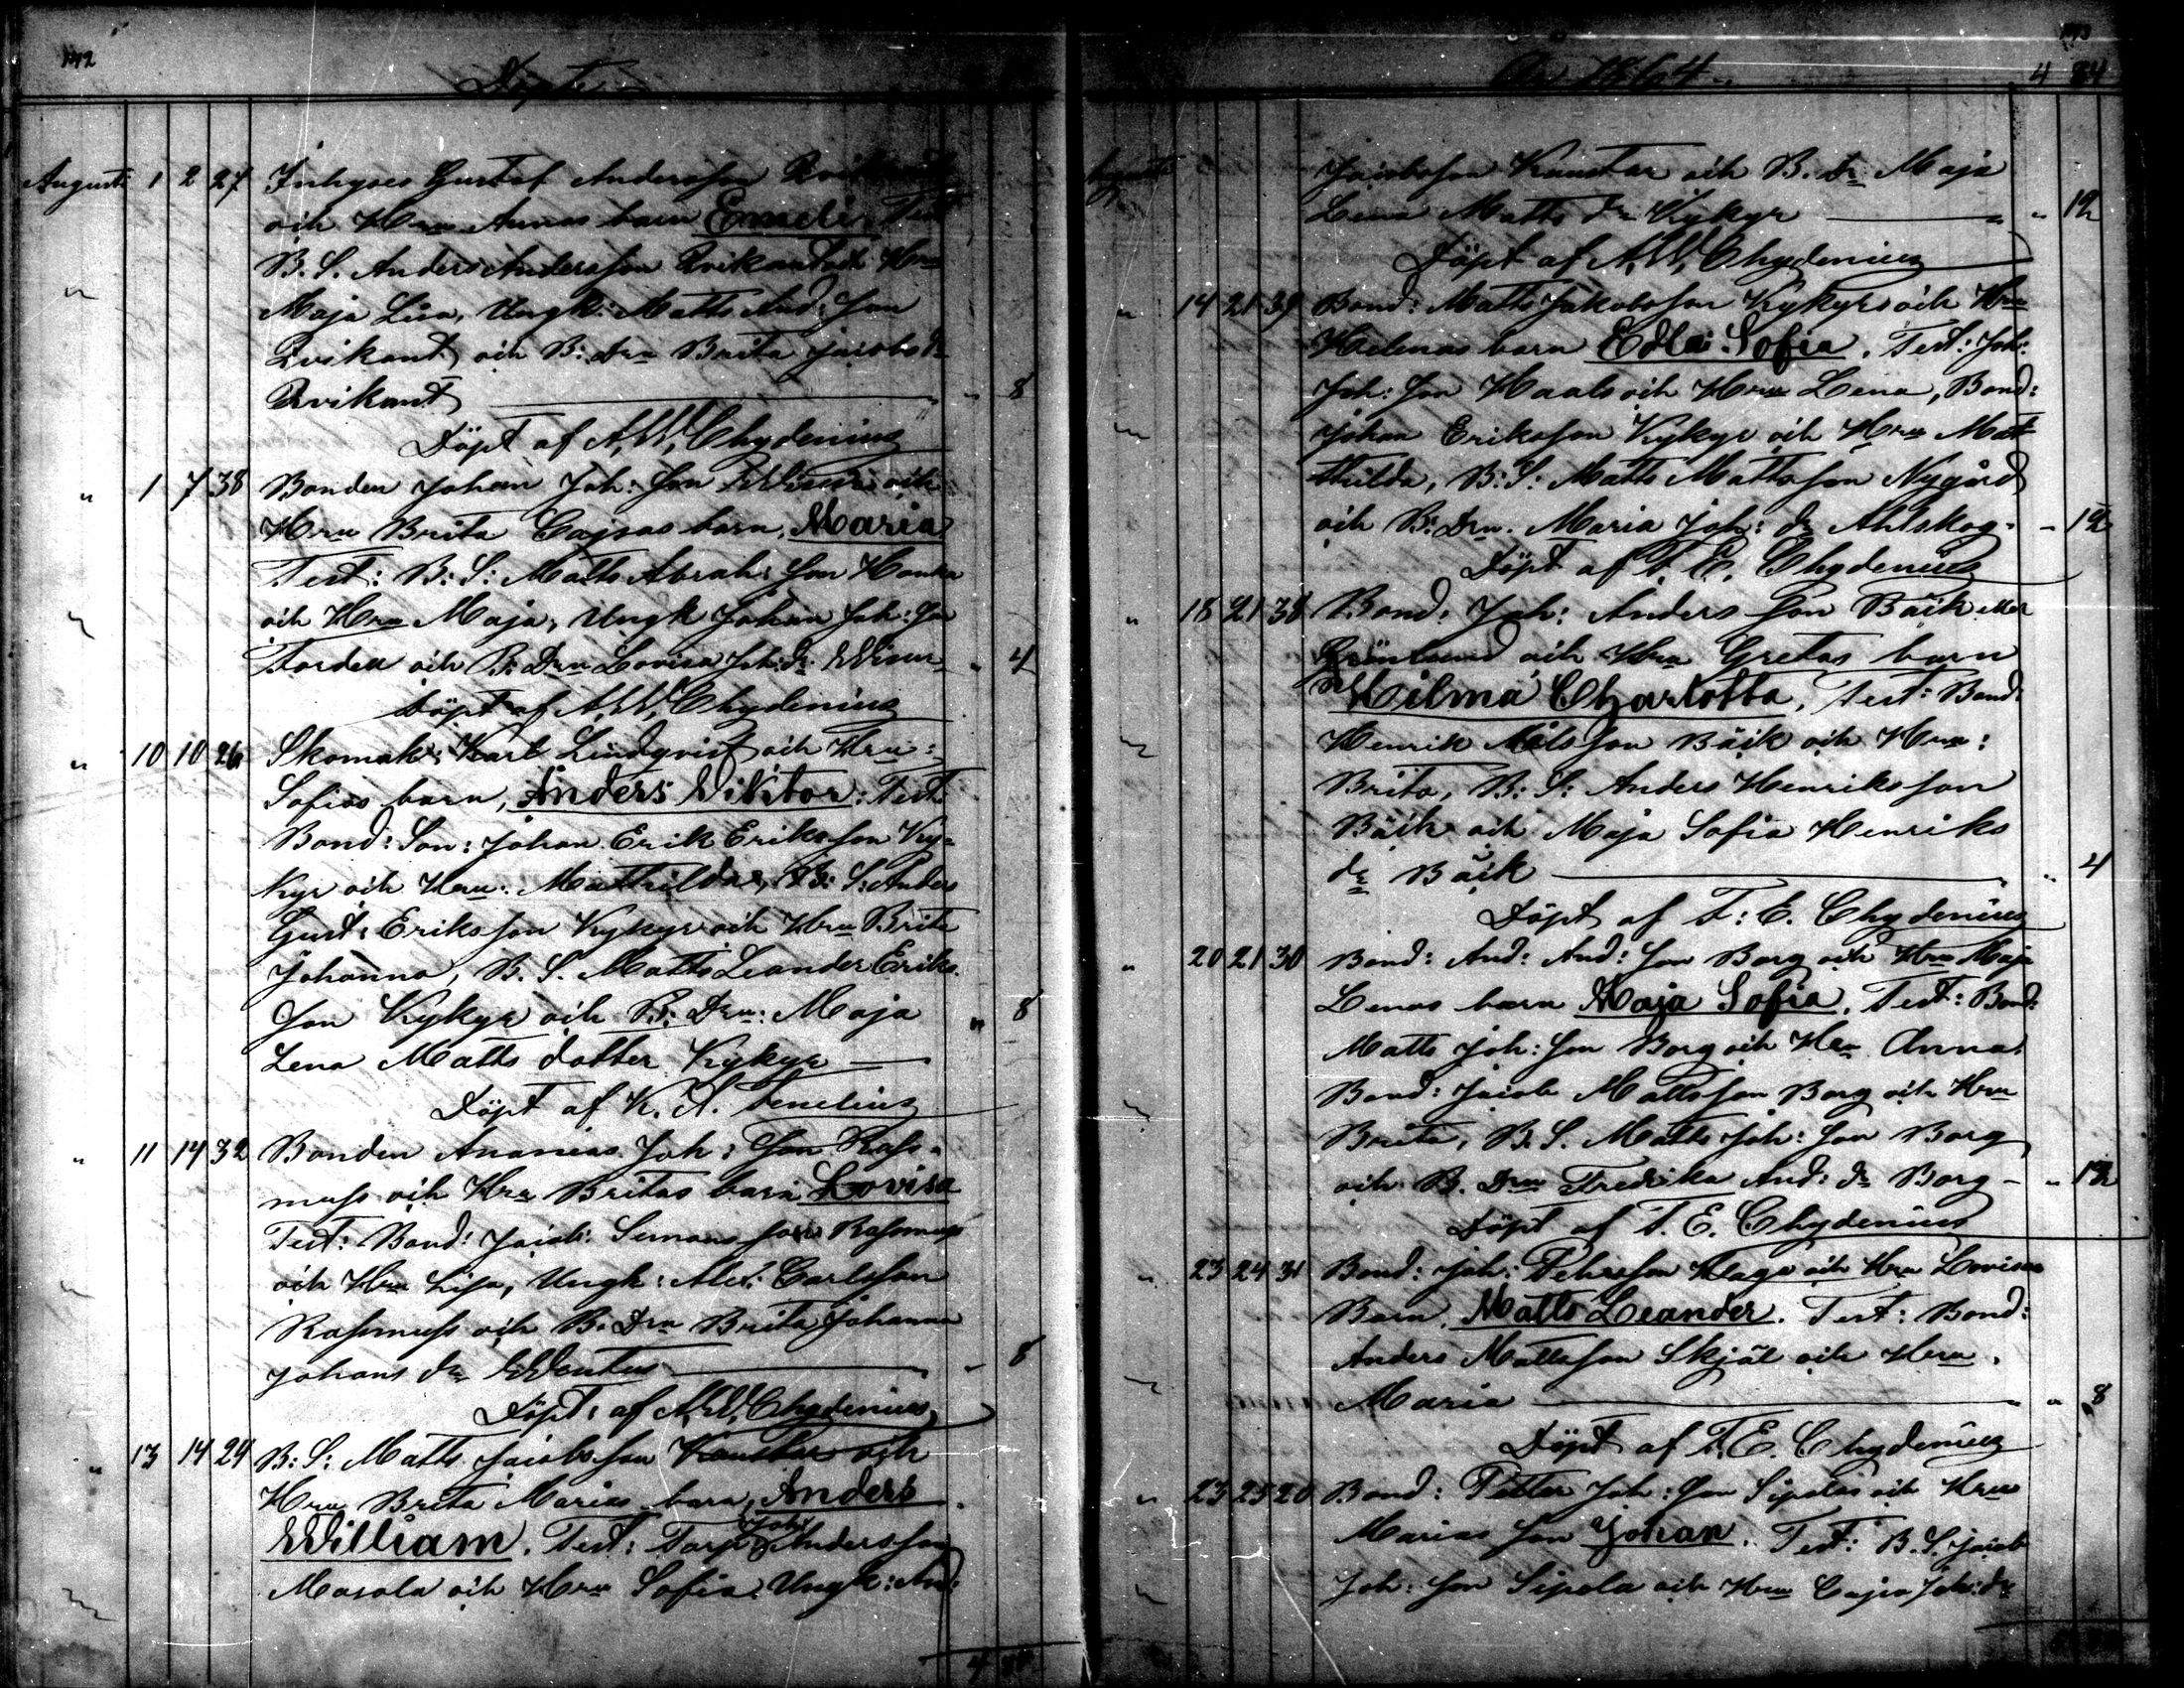 142
Döpte
Augusti 1 2 27 Inhyses Gustaf Andersson Qvikant
och Hru Annas barn Emeli, Test
B. S. Anders Andersson Qvikant och Hru
Maja Lisa, Ungk: Matts And: Son
Qvikant och B: Drn Brita Jacobs dr
Qvikant " 8
Döpt af A. W. Chydenius
" 1 7 38 Bonden Johan Joh: Son och
Hru Brita Cajsas barn, Maria
Test: B: S: Matts Abrah: Son Honka
och Hru Maja, Ungk Johan Joh: Son
och B: Drn Lovisa Joh: dr " 4
Döpt af A. W. Chydenius
" 10 10 26 Skomak: Karl Lindqvist och Hru:
Sofias barn, Anders Viktor: Test.
Bond: Son: Johan Erik Eriksson Ky-
kyr och Hru: Mathilda, B: S: Anders
Gust: Eriksson Kykyr och Hru Brita
Johanna, B. S. Matts Leander Eriks.
Son Kykyr och B: Drn: Maja " 8
Lena Matts dotter Kykyr
Döpt af K. A.
" 11 14 32 Bonden Ananias Joh: Son Rass-
muss och Hru Britas barn Lovisa
Test: Bond: Jacob: Simons son Rasmuss
och Hru Lisa, Ungk: Alex: Carlsson
Rasmuss och B: Drn Brita Johanna
Johans dr " 8
Döpt af A. W. Chydenius
" 13 14 24 B: S: Matts Jacobsson Kanstar och
Hru Brita Marias barn, Anders
William. Test: Torp Joh: Andersson
Masala och Hru Sofia, Ungk: And:
4
143
År 1864. 4 84
Augusti Jacobsson Kanstar och B. Dr Maja
Lena Matts dr Kykyr " 12
Döpt af A. W. Chydenius
" 14 21 39 Bond: Matts Jakobsson Kykyr och Hru
Helenas barn Edla Sofia. Test: Joh:
Joh: Son Haals och Hru Lena, Bond:
Johan Eriksson Kykyr och Hru Mat
thilda, B: S: Matts Mattsson Nygård
och B: Drn. Maria Joh: dr Ahlskog - 12
Döpt af F. E. Chydenius
" 18 21 38 Bond: Joh: Anders Son Bäck eller
Grönlund och Hru Gretas barn
Hilma Charlotta, Test: Bond:
Henrik Nilsson Bäck och Hru:
Brita, B: S: Anders Henriksson
Bäck och Maja Sofia Henriks
dr Bäck " 4
Döpt af F: E. Chydenius
" 20 21 30 Bond: And: And: Son Borg och Hru Maja
Lenas barn Maja Sofia. Test: Bond:
Matts Joh: Son Borg och Hru Anna.
Bond: Jacob Mattsson Borg och Hru
Brita, B. S. Matts Joh: Son Borg
och B. Drn Fredrika And: dr Borg - " 12
Döpt af F. E. Chydenius
" 23 24 31 Bond: Joh: Pehrsson Klage och Hru Lovisas
Barn, Matts Leander. Test: Bond:
Anders Mattsson Skjäl och Hru.
Maria " 8
Döpt af F. E. Chydenius
" 23 25 20 Bond: Petter Joh: Son Sipola och Hru
Marias Son Johan. Test: B. S. Jacob
Joh: Son Sipola och Hru Cajsa Joh: dr